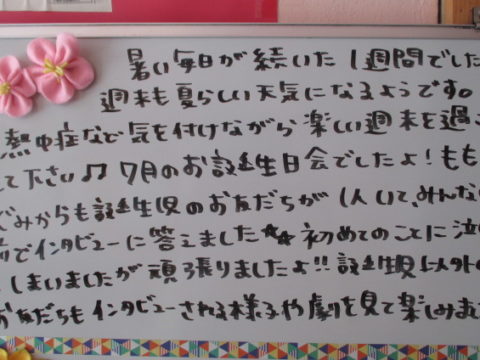 暑い毎日が続いた1週間でした
週末も夏らしい天気になるようです。
熱中症など気を付けながら楽しい週末を過ご
して下さい♪♪7月のお誕生日会でしたよ！もも
ぐみからも誕生児のお友だちが1人いて、みんな
前でインタビューに答えました☆☆初めてのことに泣
しまいましたが頑張りましたよ!!誕生児以外の
お友だちもインタビューされる様子や劇を見て楽しみま